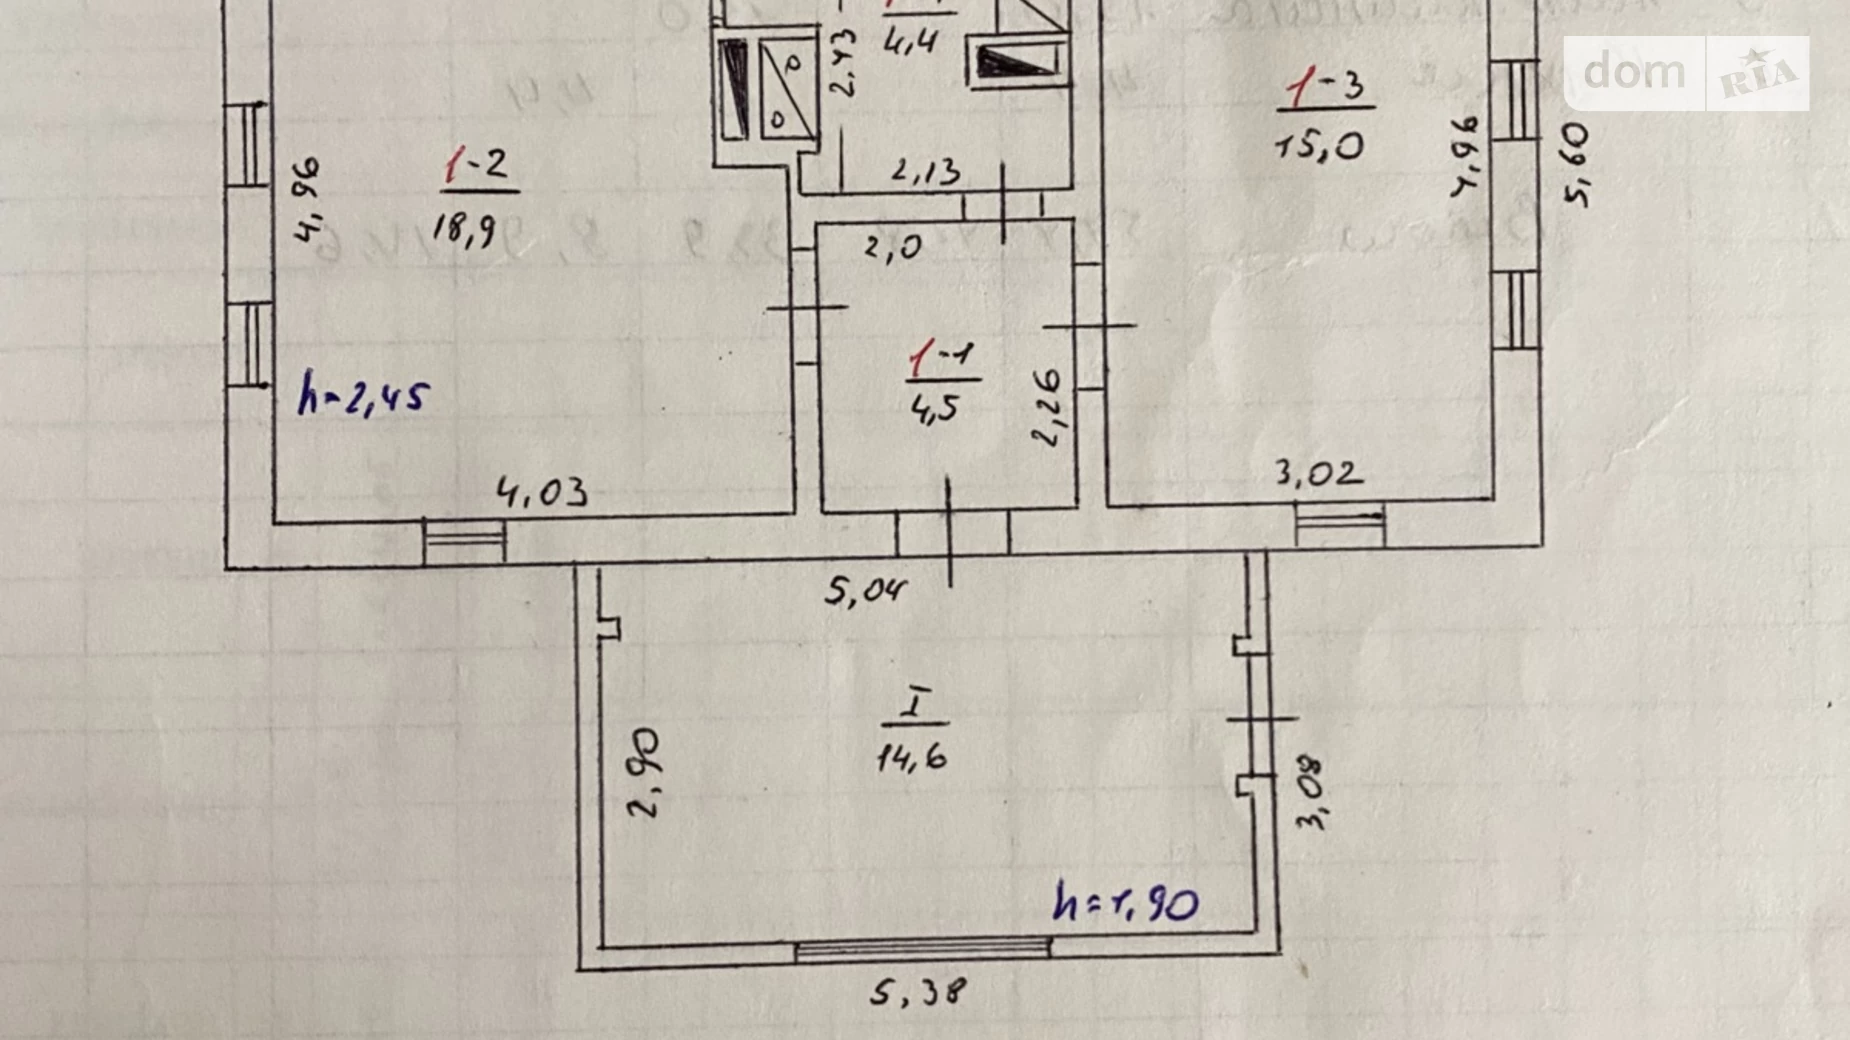 4,4
2,43
dom RIA
1-3
15,0
4,96
5,60
1-2
18,9
4,96
2,13
2,0
1-1
4,5
2,26
h=2,45
4,03
3,02
5,04
I
14,6
2,90
3,08
h=1,90
5,38